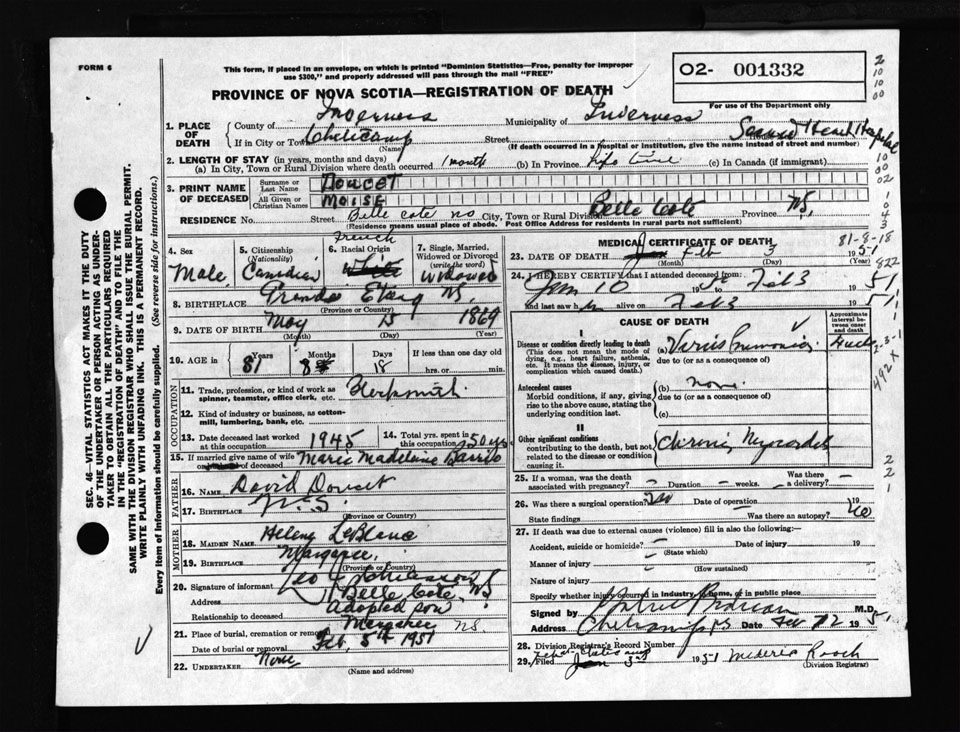 FORM 6
This form, if placed in an envelope, on which is printed "Dominion Statistics—Free, penalty for improper
use $300," and properly addressed will pass through the mail "FREE"
O2- 001332
PROVINCE OF NOVA SCOTIA—REGISTRATION OF DEATH
For use of the Department only
1. PLACE OF DEATH County of Inverness Municipality of Inverness
If in City or Town Cheticamp (Name) Street Sacred Heart Hospital
(If death occurred in a hospital or institution, give the name instead of street and number)
2. LENGTH OF STAY (in years, months and days)
(a) In City, Town or Rural Division where death occurred 1 month (b) In Province Life time (c) In Canada (if immigrant)
3. PRINT NAME OF DECEASED Surname or Last Name DOUCET
All Given or Christian Names MOISE
RESIDENCE No. Street Belle Cote NS City, Town or Rural Division Belle Cote Province N.S.
(Residence means usual place of abode. Post Office Address for residents in rural parts not sufficient)
4. Sex Male
5. Citizenship (Nationality) Canadian
6. Racial Origin French White
7. Single, Married, Widowed or Divorced (write the word) Widowed
8. BIRTHPLACE Grande Etang NS. (Province or Country)
9. DATE OF BIRTH May 15 1869
(Month) (Day) (Year)
10. AGE in Years 81 Months 8 Days 18 If less than one day old hrs. or min.
OCCUPATION
11. Trade, profession, or kind of work as spinner, teamster, office clerk, etc.
12. Kind of industry or business, as cotton-mill, lumbering, bank, etc.
13. Date deceased last worked at this occupation 1945
14. Total yrs. spent in this occupation 50 yrs
15. If married give name of wife or of deceased Marie Madeleine
FATHER
16. NAME David Doucet
17. BIRTHPLACE N.S. (Province or Country)
MOTHER
18. MAIDEN NAME Helene LeBlanc
19. BIRTHPLACE Margaree (Province or Country)
20. Signature of informant Leo
Address Belle Cote, NS
Relationship to deceased adopted son
21. Place of burial, cremation or removal Margaree NS.
Date of burial or removal Feb. 5th 1951
22. UNDERTAKER None
(Name and address)
MEDICAL CERTIFICATE OF DEATH
81-8-18
23. DATE OF DEATH Feb 3 1951
(Month) (Day) (Year)
24. I HEREBY CERTIFY that I attended deceased from
Jan 10 to Feb 3 1951
and last saw h m alive on Feb 3 1951
CAUSE OF DEATH
Approximate interval between onset and death
I
Disease or condition directly leading to death
(This does not mean the mode of dying, e.g., heart failure, asthenia, etc. It means the disease, injury, or complication which caused death.)
(a) Virus Pneumonia
due to (or as a consequence of)
Antecedent causes
Morbid conditions, if any, giving rise to the above cause, stating the underlying condition last.
(b) none
due to (or as a consequence of)
(c)
II
Other significant conditions
contributing to the death, but not related to the disease or condition causing it.
Chronic Myocarditis
25. If a woman, was the death associated with pregnancy? — Duration — weeks. Was there a delivery? —
26. Was there a surgical operation? no Date of operation — 19
State findings — Was there an autopsy? no
27. If death was due to external causes (violence) fill in also the following:—
Accident, suicide or homicide? — Date of injury 19
(State which)
Manner of injury —
(How sustained)
Nature of injury —
Specify whether injury occurred in industry, home, or in public place
Signed by M.D.
Address Cheticamp NS Date Feb 12 1951
28. Division Registrar's Record Number
29. Filed Jan 3rd 1951
(Division Registrar)
SEC. 46—VITAL STATISTICS ACT MAKES IT THE DUTY
OF THE UNDERTAKER OR PERSON ACTING AS UNDERTAKER TO OBTAIN ALL THE PARTICULARS REQUIRED
IN THE "REGISTRATION OF DEATH" AND TO FILE THE
SAME WITH THE DIVISION REGISTRAR WHO SHALL ISSUE THE BURIAL PERMIT.
WRITE PLAINLY WITH UNFADING INK. THIS IS A PERMANENT RECORD.
Every item of Information should be carefully supplied. (See reverse side for instructions.)